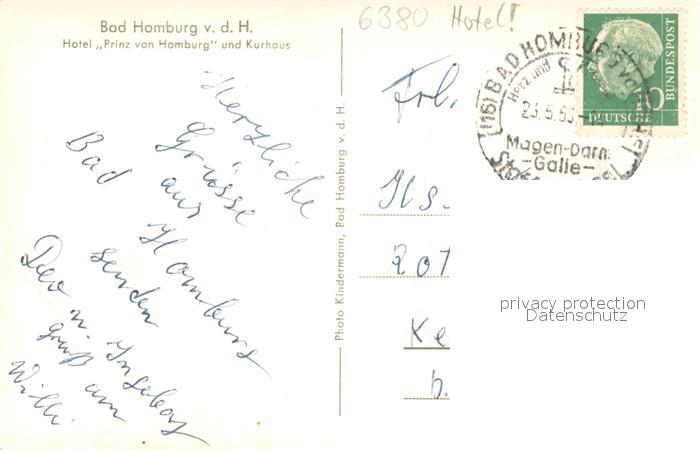 Bad Homburg v. d. H.
Hotel „Prinz von Homburg" und Kurhaus
6380 Hotel!
Herzliche
Grüsse
aus
Bad Homburg
senden
u. Ingeborg
Gruß am
Willi
Photo Kindermann, Bad Homburg v. d. H.
Frl.
Ils.
Ke
b.
(16) BAD HOMBURG
Herz und
Magen-Darm
-Galle-
10
DEUTSCHE
BUNDESPOST
privacy protection
Datenschutz